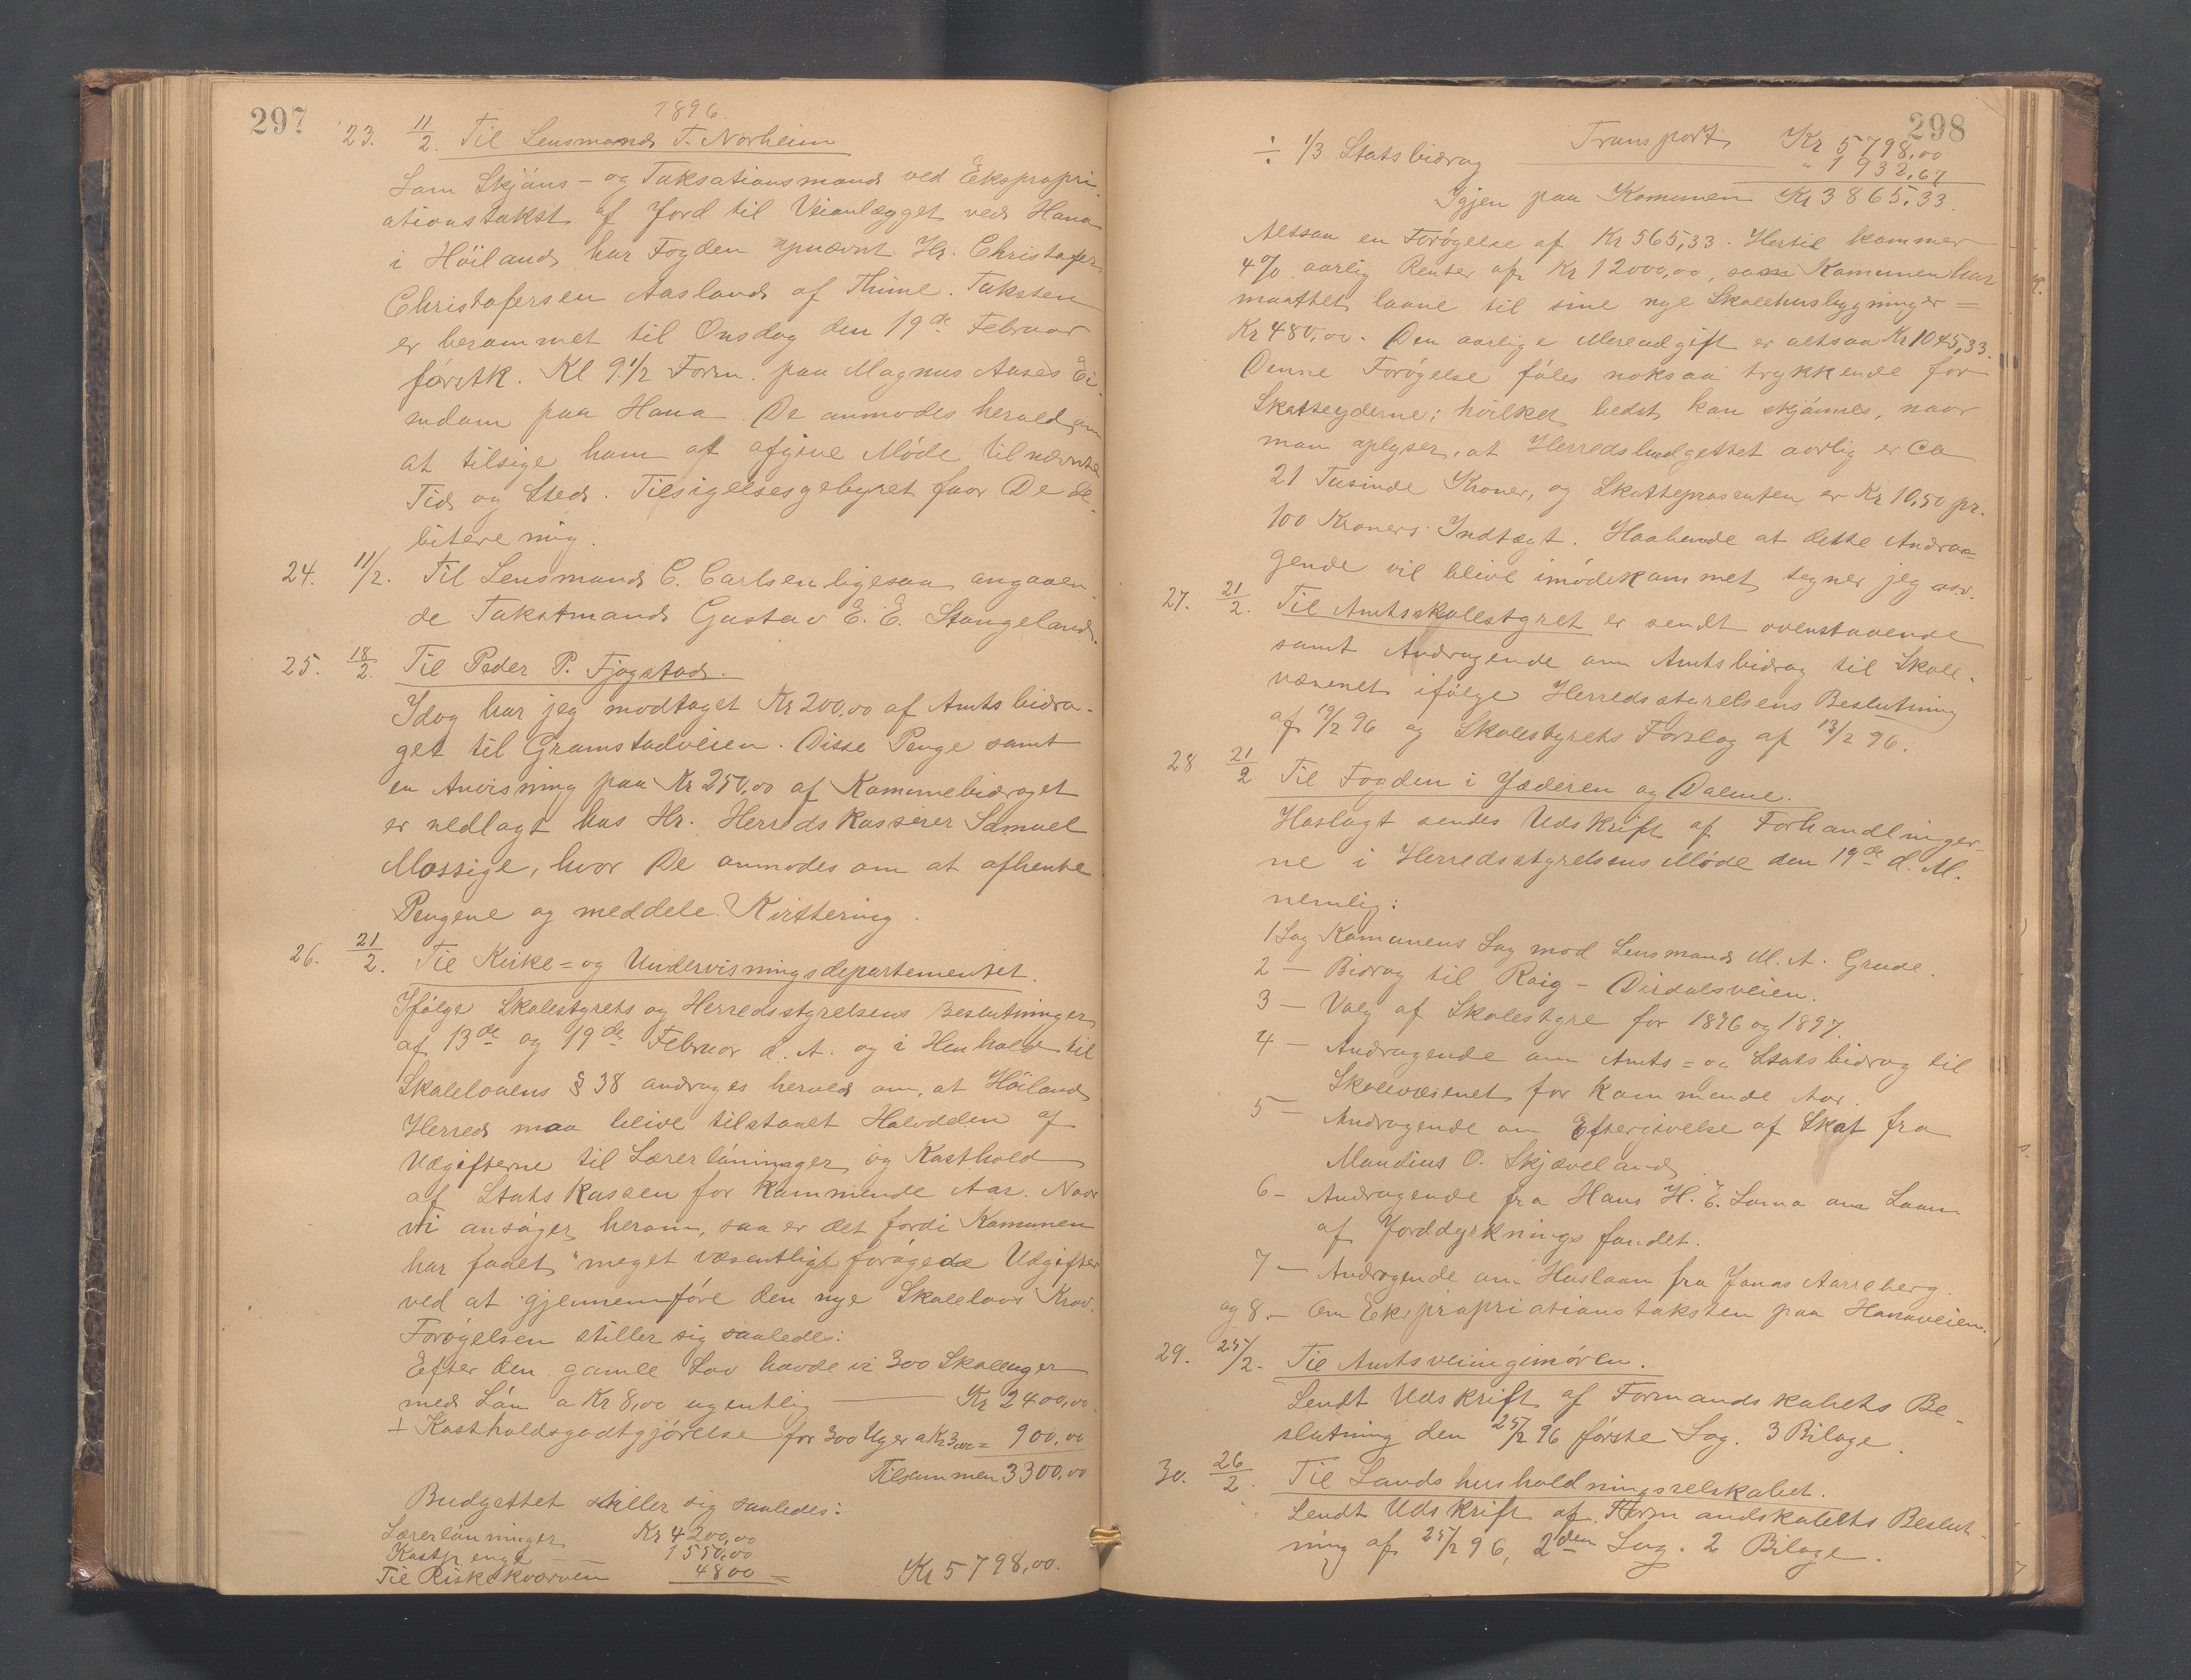 297
1896.
23. 11/2. Til Lensmand T. Norheim
Som Skjøns- og Taksationsmand ved Ekspropri-
ationstakst af Jord til Veianlægget ved Hana
i Höiland har Fogden opnævnt Hr. Christofer
Christofersen Aasland af Thime. Taksten
er berammet til Onsdag den 19de Februar
förstk. Kl 9 1/2 Form. paa Magnus Aases Ei-
endom paa Hana. De anmodes herved om
at tilsige ham at afgive Möde til nævnte
Tid og Sted. Tilsigelsesgebyret faar De de-
bitere mig.
24. 11/2. Til Lensmand C. Carlsen ligesaa angaaen-
de Takstmand Gustav E. E. Stangeland.
25. 18/2. Til Peder P. Fjogstad.
Idag har jeg modtaget Kr 200,00 af Amtsbidra-
get til Gramstadveien. Disse Penge samt
en Anvisning paa Kr 250,00 af Komunebidraget
er nedlagt hos Hr. Herredskasserer Samuel
Mossige, hvor De anmodes om at afhente
Pengene og meddele Kvittering.
26. 21/2. Til Kirke= og Undervisningsdepartementet.
Ifölge Skolestyrets og Herredsstyrelsens Beslutninger
af 13de og 19de Februar d. A. og i Henhold til
Skolelovens § 38 andrages herved om, at Höiland
Herred maa blive tilstaaet Halvdelen af
Udgifterne til Lærerlönninger og Kosthold
af Statskassen for kommende Aar. Naar
vi ansöger herom, saa er det fordi Komunen
har faaet meget væsentligt forögede Udgifter
ved at gjennemföre den nye Skolelovs Krav.
Forögelsen stiller sig saaledes:
Efter den gamle Lov havde vi 300 Skoleuger
med Lön a Kr 8,00 ugentlig — Kr 2400,00
+ Kostholdsgodtgjörelse for 300 Uger a Kr 3,00 = 900,00
Tilsammen 3300,00
Budgettet stiller sig saaledes:
Lærerlönninger Kr 4200,00
Kostpenge — 1550,00
Til Riskekværven 4800 = Kr 5798,00.
298
Transport Kr 5798,00
÷ 1/3 Statsbidrag — " 1932,67
Igjen paa Komunen Kr 3865,33.
Altsaa en Forögelse af Kr 565,33. Hertil kommer
4% aarlig Renter af Kr 12000,00, som Komunen har
maattet laane til sine nye Skolehusbygninger =
Kr 480,00. Den aarlige Merudgift er altsaa Kr 1045,33.
Denne Forögelse föles noksaa trykkende for
Skatteyderne; hvilket bedst kan skjönnes, naar
man oplyser, at Herredsbudgettet aarlig er ca
21 Tusinde Kroner, og Skatteprosenten er Kr 10,50 pr.
100 Kroners Indtægt. Haabende at dette Andra-
gende vil blive imödekommet tegner jeg osv.
27. 21/2. Til Amtsskolestyret er sendt ovenstaaende
samt Andragende om Amtsbidrag til Skole-
væsenet ifölge Herredsstyrelsens Beslutning
af 19/2 96 og Skolestyrets Forslag af 13/2 96.
28 21/2 Til Fogden i Jæderen og Dalene.
Hoslagt sendes Udskrift af Forhandlinger-
ne i Herredsstyrelsens Möde den 19de d. M.
nemlig:
1 Sag Komunens Sag mod Lensmand M. A. Grude.
2 — Bidrag til Raig - Dirdalsveien.
3 — Valg af Skolestyre for 1896 og 1897.
4 — Andragende om Amts= og Statsbidrag til
Skolevæsenet for kommende Aar.
5 — Andragende om Eftergivelse af Skat fra
Mandius O. Skjæveland.
6 - Andragende fra Hans H. E. Soma om Laan
af Jorddyrkningsfondet.
7 — Andragende om Huslaan fra Jonas Aarreberg.
og 8. — Om Ekspropriationstaksten paa Hanaveien.
29. 25/2. Til Amtsveiingeniøren.
Sendt Udskrift af Formandskabets Be-
slutning den 25/2 96 förste Sag. 3 Bilage.
30. 26/2. Til Landshusholdningsselskabet.
Sendt Udskrift af Formandskabets Beslut-
ning af 25/2 96, 2den Sag. 2 Bilage.